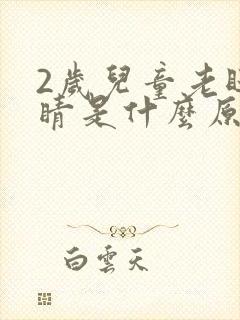 2歲兒童老眨
睛是什麼原
白雲天